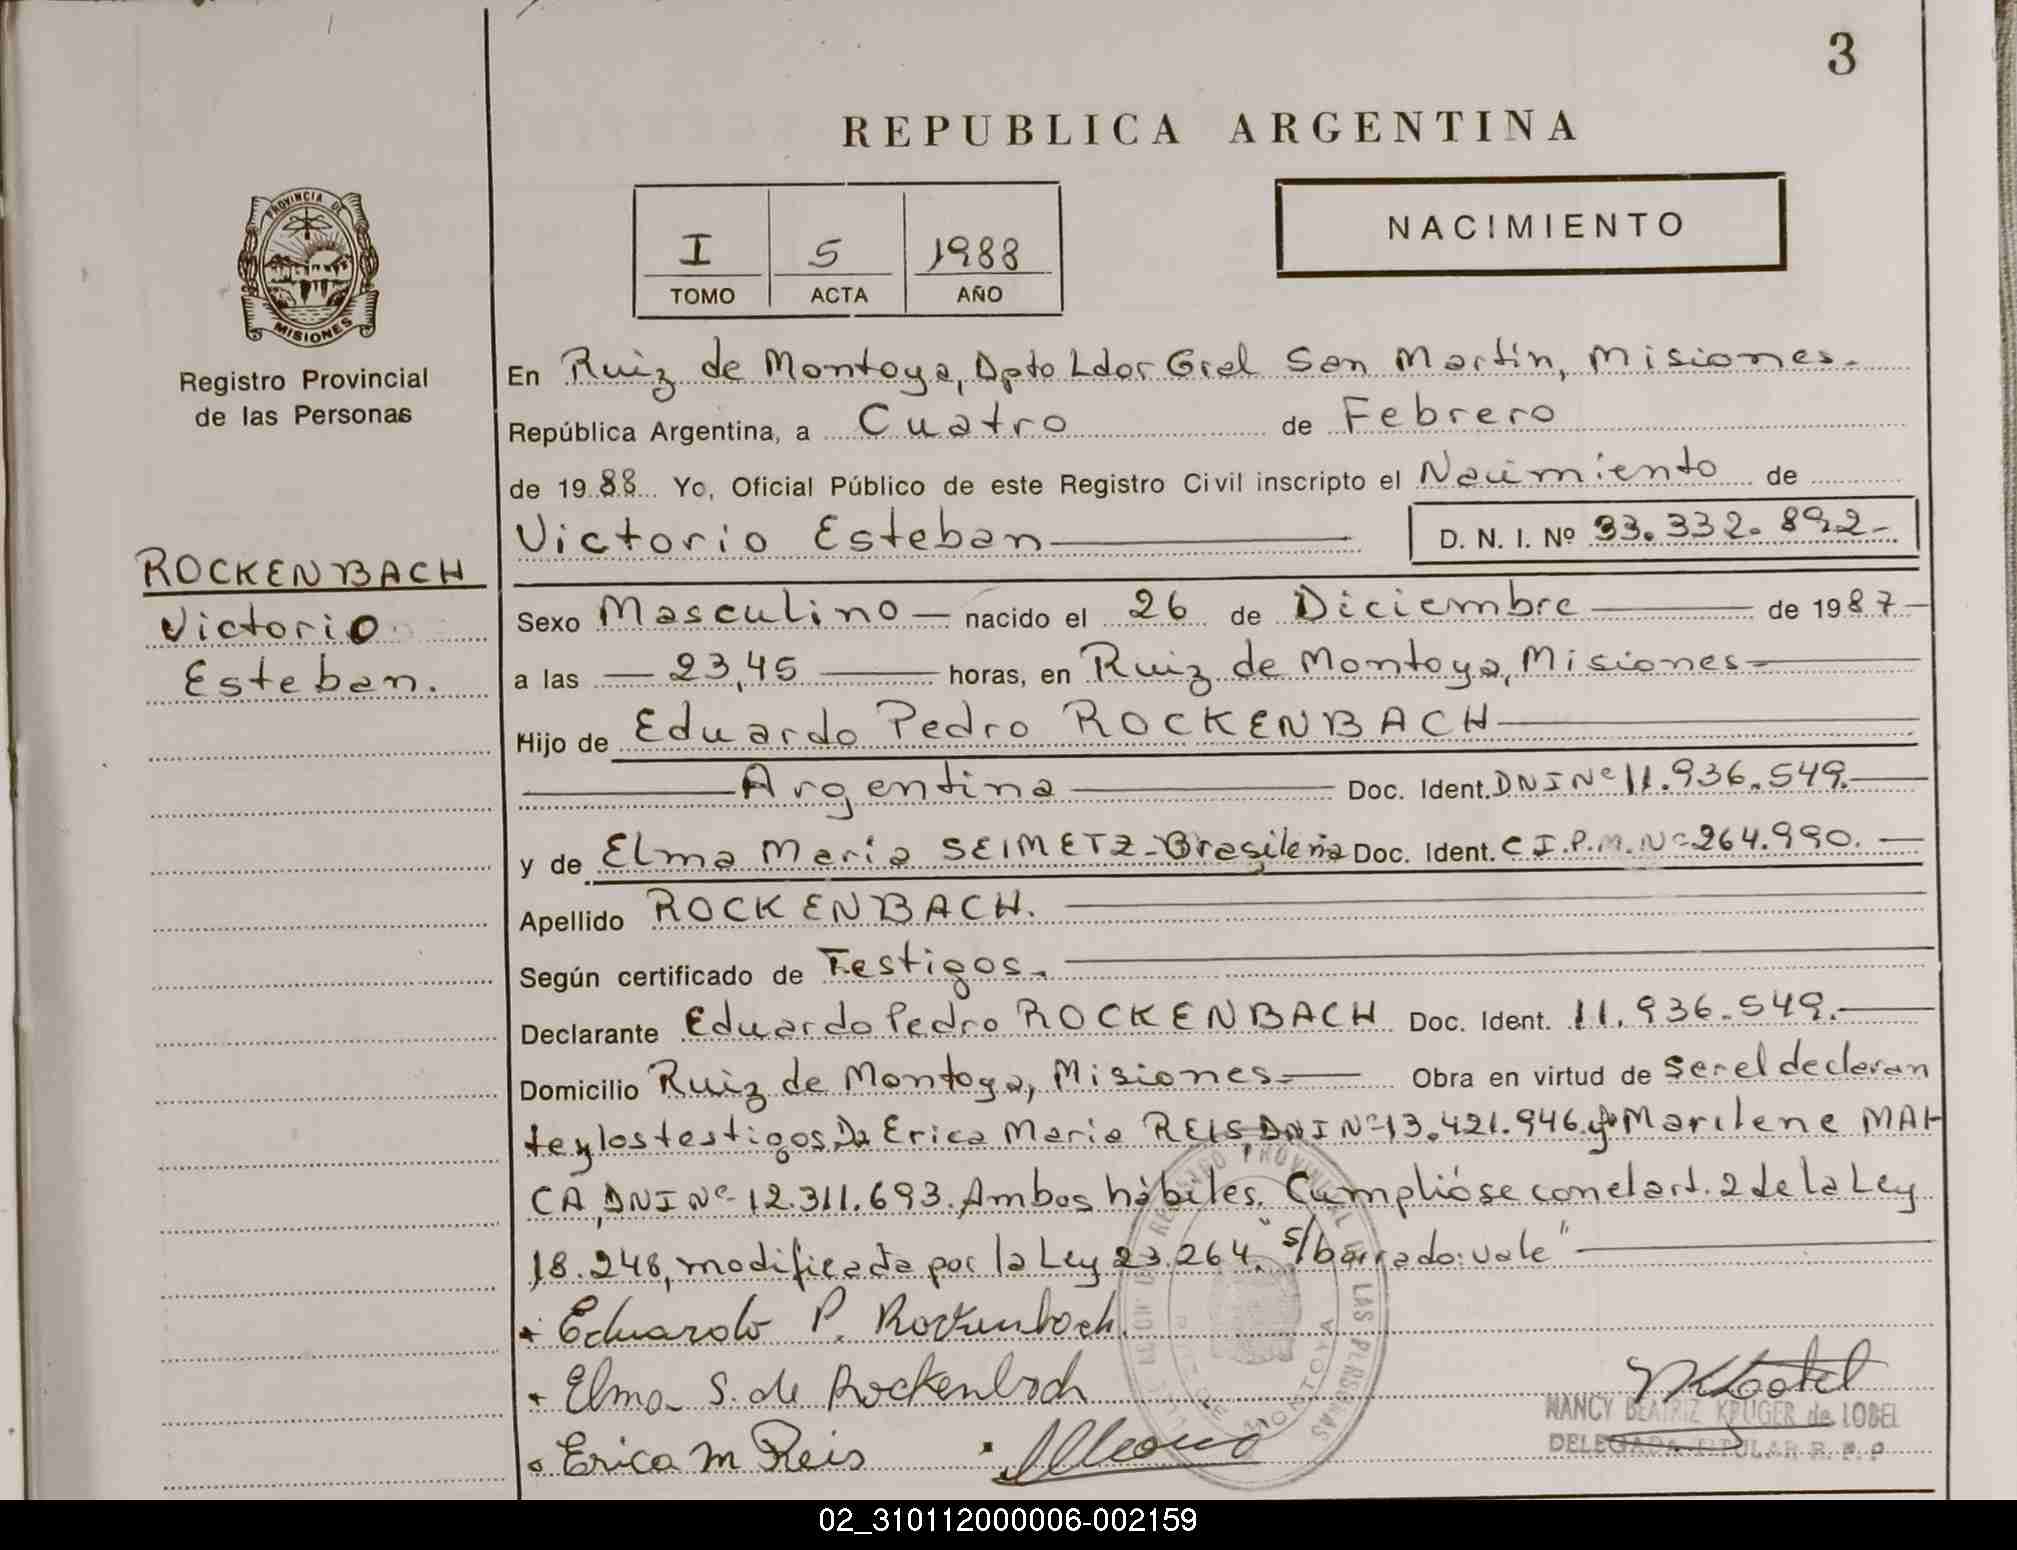 3
REPUBLICA ARGENTINA
PROVINCIA DE
MISIONES
Registro Provincial
de las Personas
I 5 1988
TOMO ACTA AÑO
NACIMIENTO
En Ruiz de Montoya, Dpto Ldor Gral San Martín, Misiones.
República Argentina, a Cuatro de Febrero
de 1988 Yo, Oficial Público de este Registro Civil inscripto el Nacimiento de
Victorio Esteban
D. N. I. Nº 33.332.892-
ROCKENBACH
Victorio
Esteban.
Sexo Masculino nacido el 26 de Diciembre de 1987
a las 23,45 horas, en Ruiz de Montoya, Misiones
Hijo de Eduardo Pedro ROCKENBACH
Argentina Doc. Ident. DNI Nº 11.936.549.
y de Elma Maria SEIMETZ-Brasileña Doc. Ident. C.I.P.M. Nº 264.990.
Apellido ROCKENBACH.
Según certificado de Testigos.
Declarante Eduardo Pedro ROCKENBACH Doc. Ident. 11.936.549.
Domicilio Ruiz de Montoya, Misiones Obra en virtud de ser el declaran
te y los testigos Da Erica Maria REIS, DNI Nº 13.421.946 y Marilene MAI-
CA, DNI Nº 12.311.693. Ambos hábiles. Cumplióse con el art. 2 de la Ley
18.248, modificada por la Ley 23.264. "s/borrado: vale"
Eduardo P. Rockenbach
Elma S. de Rockenbach
Erica M Reis
NANCY BEATRIZ KRUGER de LOBEL
DELEGADA TITULAR R. P. P
02_310112000006-002159